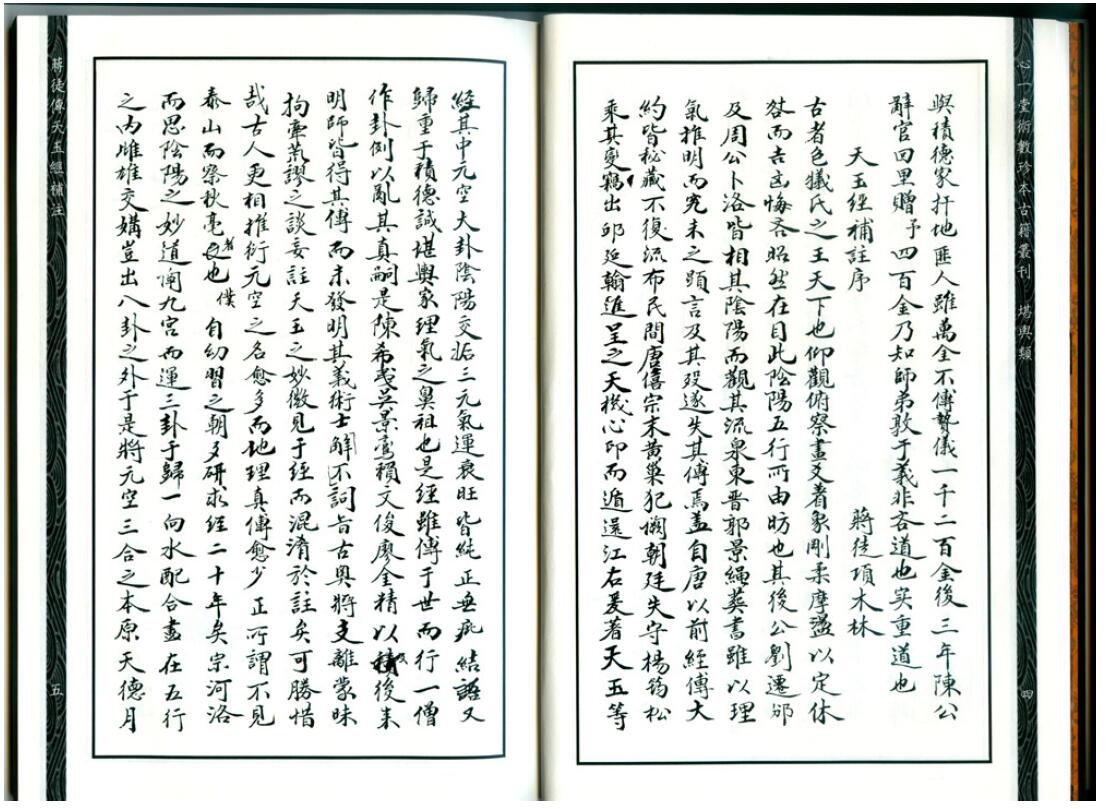 心一堂術數珍本古籍叢刊　堪輿類
四
與積德家扞地匪人雖萬金不傳贄儀一千二百金後三年陳公
辭官回里贈予四百金乃知師弟敦于義非吝道也实重道也
天玉經補註序
蔣徒項木林
古者包犧氏之王天下也仰觀俯察畫爻著象剛柔摩盪以定休
咎而吉凶悔吝昭然在目此陰陽五行所由昉也其後公劉遷邠
及周公卜洛皆相其陰陽而觀其流泉東晋郭景繩葬書雖以理
氣推明而究未之顯言及其歿遂失其傳焉盖自唐以前經傳大
約皆秘藏不復流布民間唐僖宗末黃巢犯闕朝廷失守楊筠松
乘其變竊出邱延翰進呈之天機心印而遁還江右爰著天玉等
經其中元空大卦陰陽交姤三元氣運衰旺皆純正無疵結語又
歸重于積德誠堪輿家理氣之鼻祖也是經雖傳于世而行一僧
作卦例以亂其真嗣是陳希夷吳景鸞賴文俊廖金精以及後来
明師皆得其傳而未發明其義術士解不詞旨古奧將支離蒙昧
拘牽荒謬之談妄註天玉之妙微見于經而混淆於註矣可勝惜
哉古人更相推衍元空之名愈多而地理真傳愈少正所謂不見
泰山而察秋毫者也僕自幼習之朝夕研求經二十年矣宗河洛
而思陰陽之妙道闡九宫而運三卦于歸一向水配合盡在五行
之内雌雄交媾豈出八卦之外于是將元空三合之本原天德月
蔣徒傳天玉經補注
五